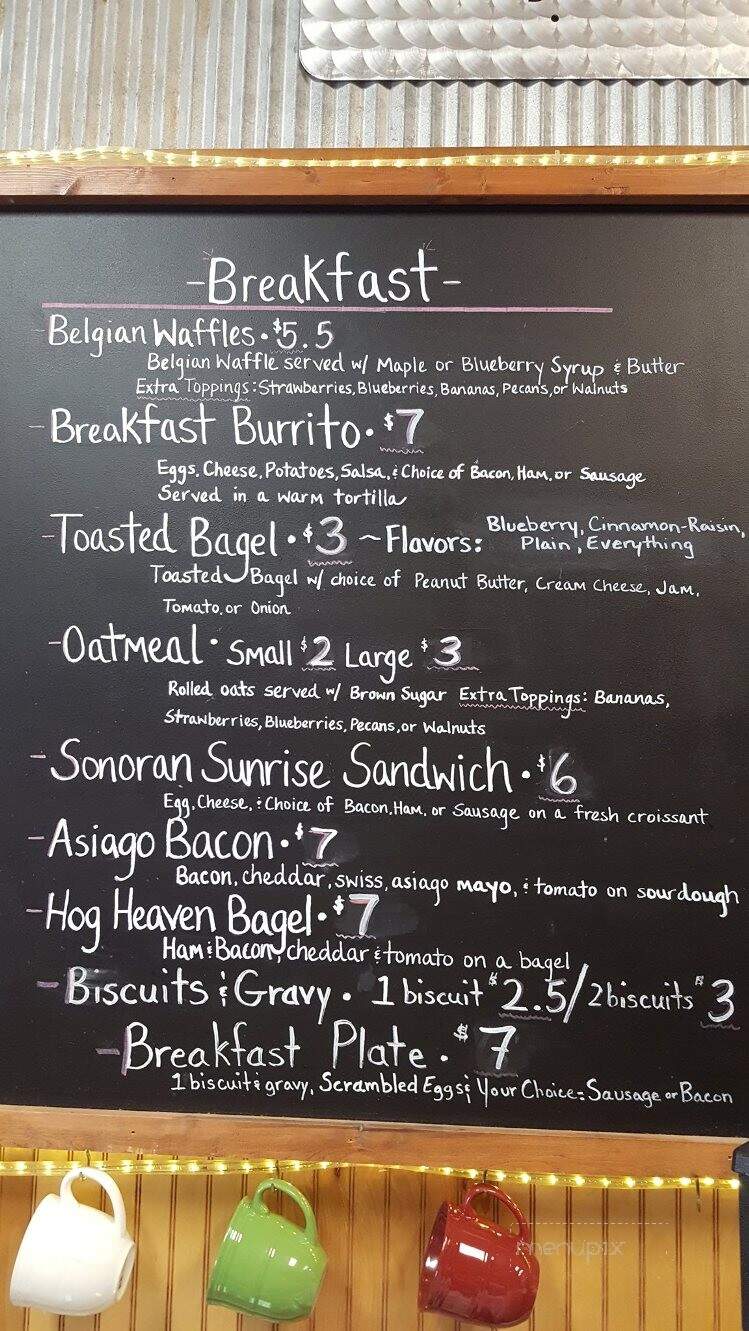 -Breakfast-
-Belgian Waffles · $5.5
Belgian Waffle served w/ Maple or Blueberry Syrup & Butter
Extra Toppings: Strawberries, Blueberries, Bananas, Pecans, or Walnuts
-Breakfast Burrito · $7
Eggs, Cheese, Potatoes, Salsa, & Choice of Bacon, Ham, or Sausage
Served in a warm tortilla
-Toasted Bagel · $3 ~ Flavors: Blueberry, Cinnamon-Raisin,
Plain, Everything
Toasted Bagel w/ choice of Peanut Butter, Cream Cheese, Jam,
Tomato, or Onion
-Oatmeal · Small $2 Large $3
Rolled oats served w/ Brown Sugar Extra Toppings: Bananas,
Strawberries, Blueberries, Pecans, or Walnuts
-Sonoran Sunrise Sandwich · $6
Egg, Cheese, & Choice of Bacon, Ham, or Sausage on a fresh croissant
-Asiago Bacon · $7
Bacon, cheddar, swiss, asiago mayo, & tomato on sourdough
-Hog Heaven Bagel · $7
Ham & Bacon, cheddar & tomato on a bagel
-Biscuits & Gravy · 1 biscuit $2.5/2 biscuits $3
-Breakfast Plate · $7
1 biscuit & gravy, Scrambled Eggs & Your Choice: Sausage or Bacon
menupix